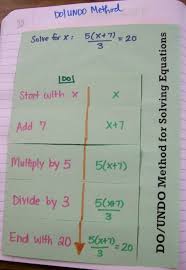 DO/UNDO Method
Solve for x: 5(x+7)/3 = 20
DO
Start with x x
Add 7 x+7
Multiply by 5 5(x+7)
Divide by 3 5(x+7)/3
End with 20 5(x+7)/3 = 20
DO/UNDO Method for Solving Equations